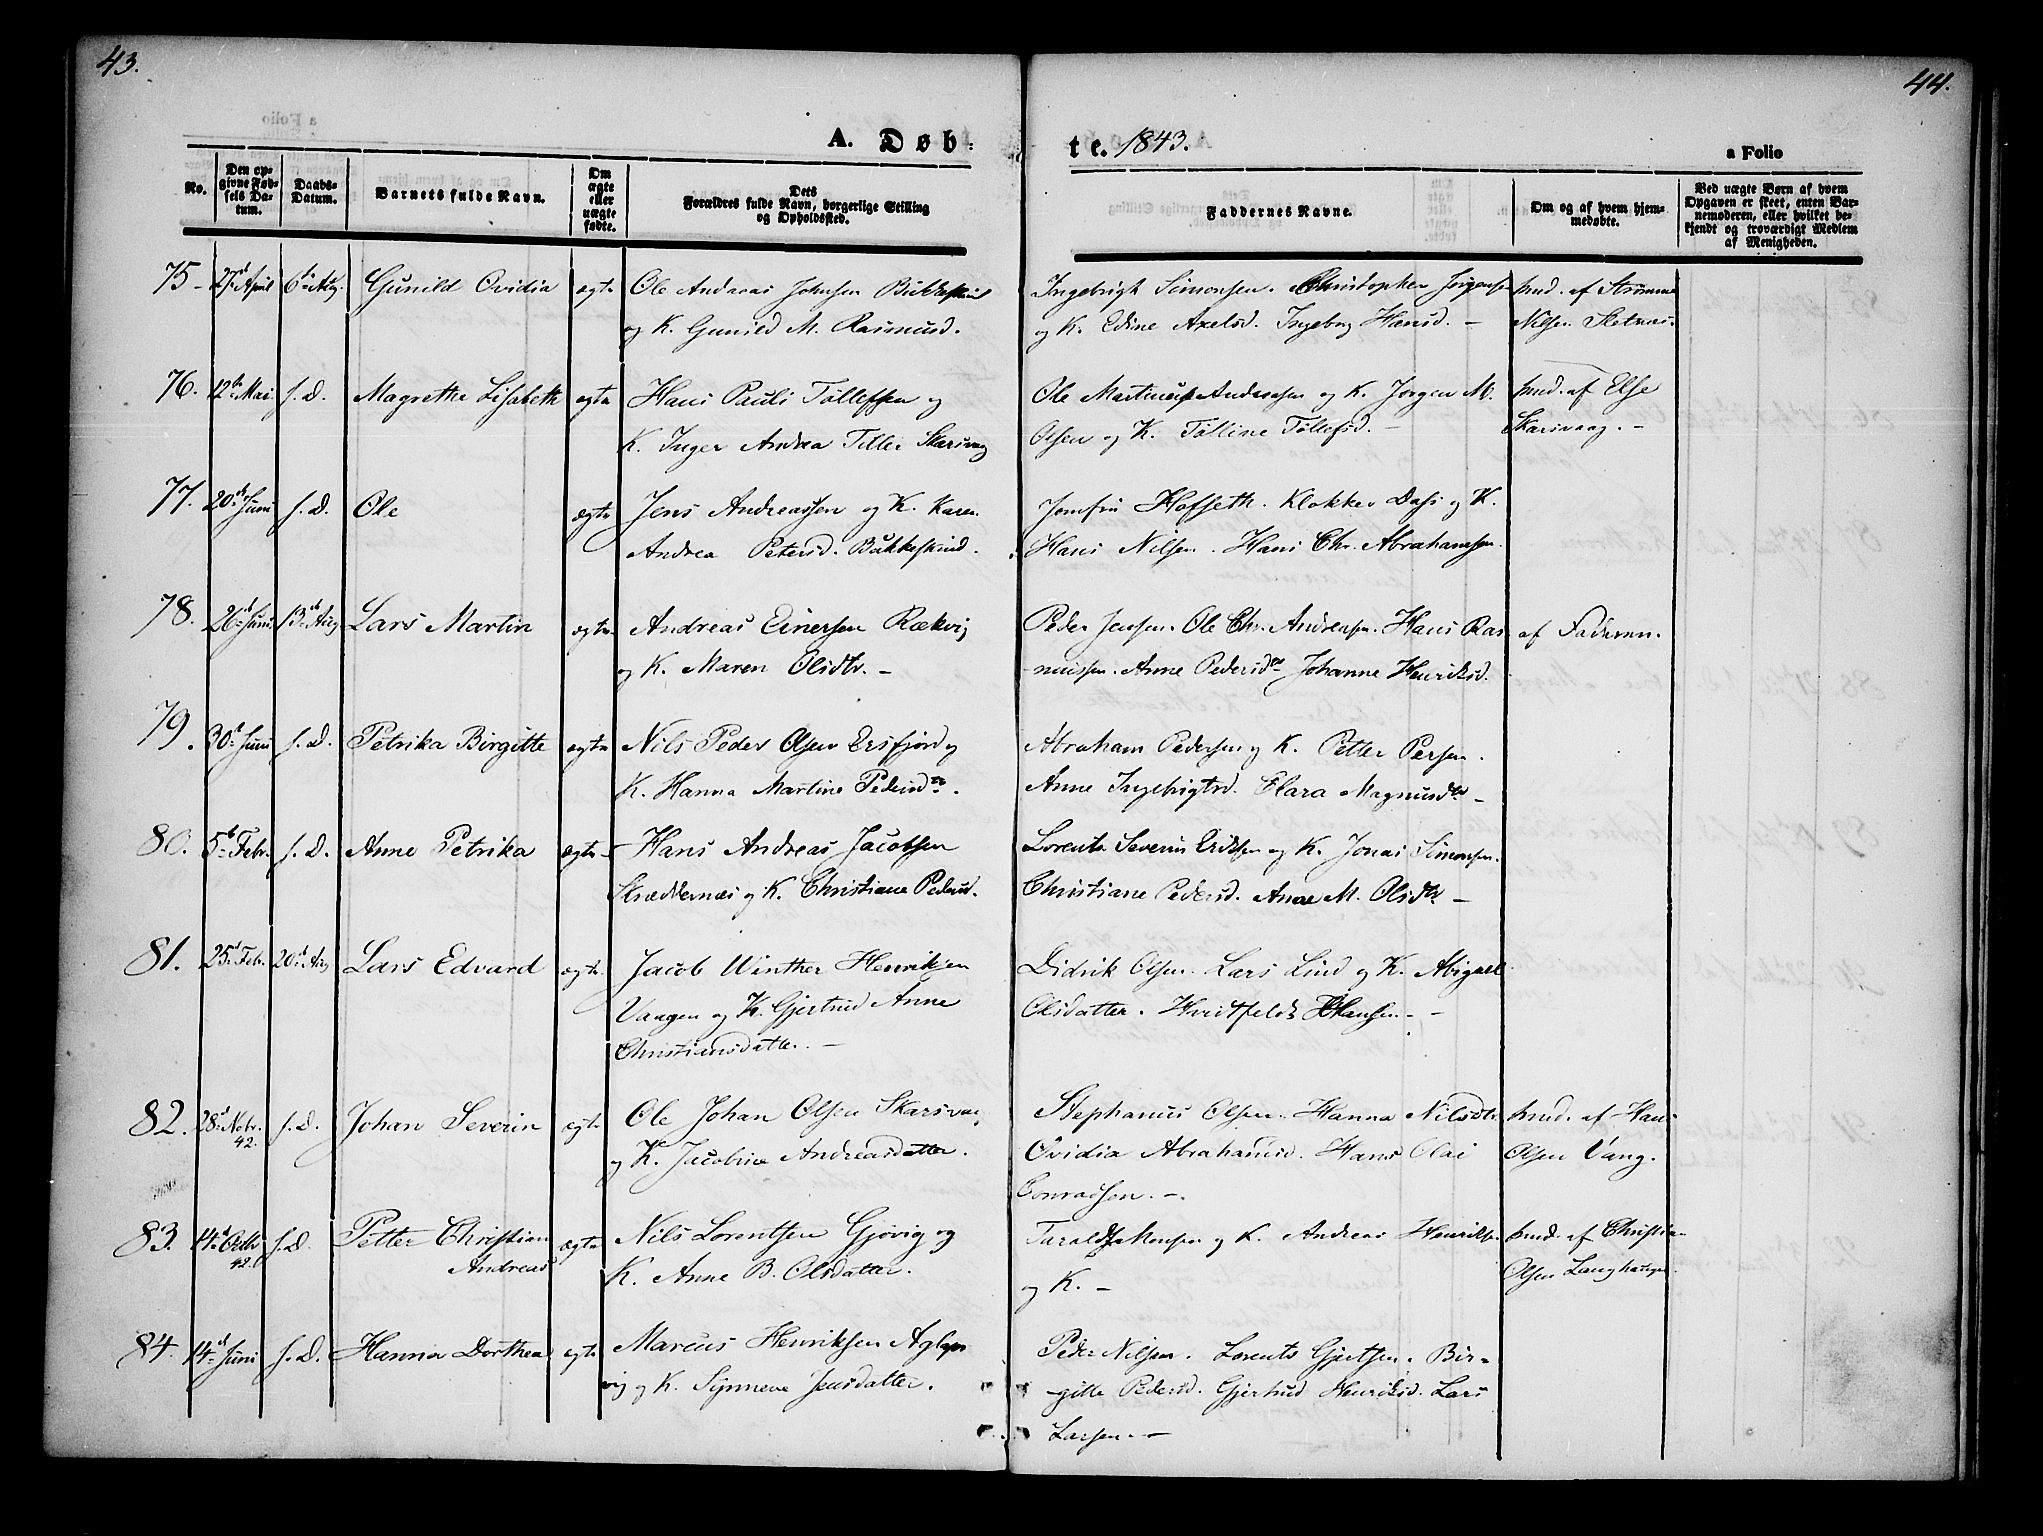 43.
44.
A. Døb-
te. 1843.
a Folio
No.
Den op-
givne Fød-
sels Da-
tum.
Daabs-
Datum.
Barnets fulde Navn.
Om
ægte
eller
uægte
fødte.
Dets
Forældres fulde Navn, borgerlige Stilling
og Opholdssted.
Faddernes Navne.
Om og af hvem hjem-
medøbte.
Ved uægte Børn af hvem
Opgaven er skeet, enten Bar-
nemoderen, eller hvilket be-
kjendt og troværdigt Medlem
af Menigheden.
75 27d April 6te Aug. Gunild Ovidia ægte Ole Andreas Johnsen Bukkeskind Ingebrigt Simonsen. Christopher Jørgensen hmd. af Strømme
og K. Gunild M. Rasmusd. og K. Edine Axelsd. Ingeborg Hansd. – Nilsen Sletnæs.
76. 12te Mai. s. D. Magrethe Lisabeth ægte Hans Pauli Tollefsen og Ole Martinus Andreasen og K. Jørgen M. hmd. af Else
K. Inger Andrea Tiller Skarsvaag Olsen og K. Tolline Tollefsd. – Skarsvaag. –
77. 20d Juni s. D. Ole ægte Jens Andreassen og K. Karen Jomfru Hofseth. Klokker Dass og K.
Andrea Petersd. Bukkeskind. Hans Nilsen. Hans Chr. Abrahamsen.
78. 26d Juni 13d Aug Lars Martin ægte Andreas Einersen Rækvig Peder Jensen. Ole Chr. Andreasen. Hans Ras af Faderen.
og K. Maren Olsdtr. – mussen. Anne Pedersd. Johanne Henriksd.
79. 30d Juni s. D. Petrika Birgitte ægte Nils Peder Olsen Ersfjord og Abraham Pedersen og K. Petter Persen.
K. Hanna Martine Pedersd. Anne Ingebrigtsd. Clara Magnusdtr –
80. 5d Febr. s. D. Anne Petrika ægte Hans Andreas Jacobsen Lorents Severin Eriksen og K. Jonas Simonsen.
Skræddernæs og K. Christiane Pedersd. Christiane Pedersd. Anne M. Olsdtr. –
81. 25d Febr. 20d Aug Lars Edvard ægte Jacob Winther Henriksen Didrik Olsen. Lars Lind og K. Abigael
Vangen og K. Gjertrud Anne Olsdatter. Hvitfeldt Hansen. –
Christiansdatter. –
82. 28d Nobr. 42. s. D. Johan Severin ægte Ole Johan Olsen Skarsvaag Stephanus Olsen. Hanna Nilsdtr hmd. af Hans
og K. Jacobine Andreasdatter. Ovidia Abrahamsd. Hans Olai Olsen Vang.
Conradsen. –
83. 14d Octbr 42. s. D. Petter Christian ægte Nils Lorentsen Gjøvig og Monsen og K. Andreas Henriksen hmd. af Christian
Andreas K. Anne B. Olsdatter. og K. – Olsen
84. 14d Juni s. D. Hanna Dorthea ægte Marcus Henriksen Aglapsvig Peder Nilsen. Lorents Gjertsen. Bir-
og K. Synneva Jensdatter. gitte Pedersd. Gjertrud Henriksd. Lars
Larsen. –